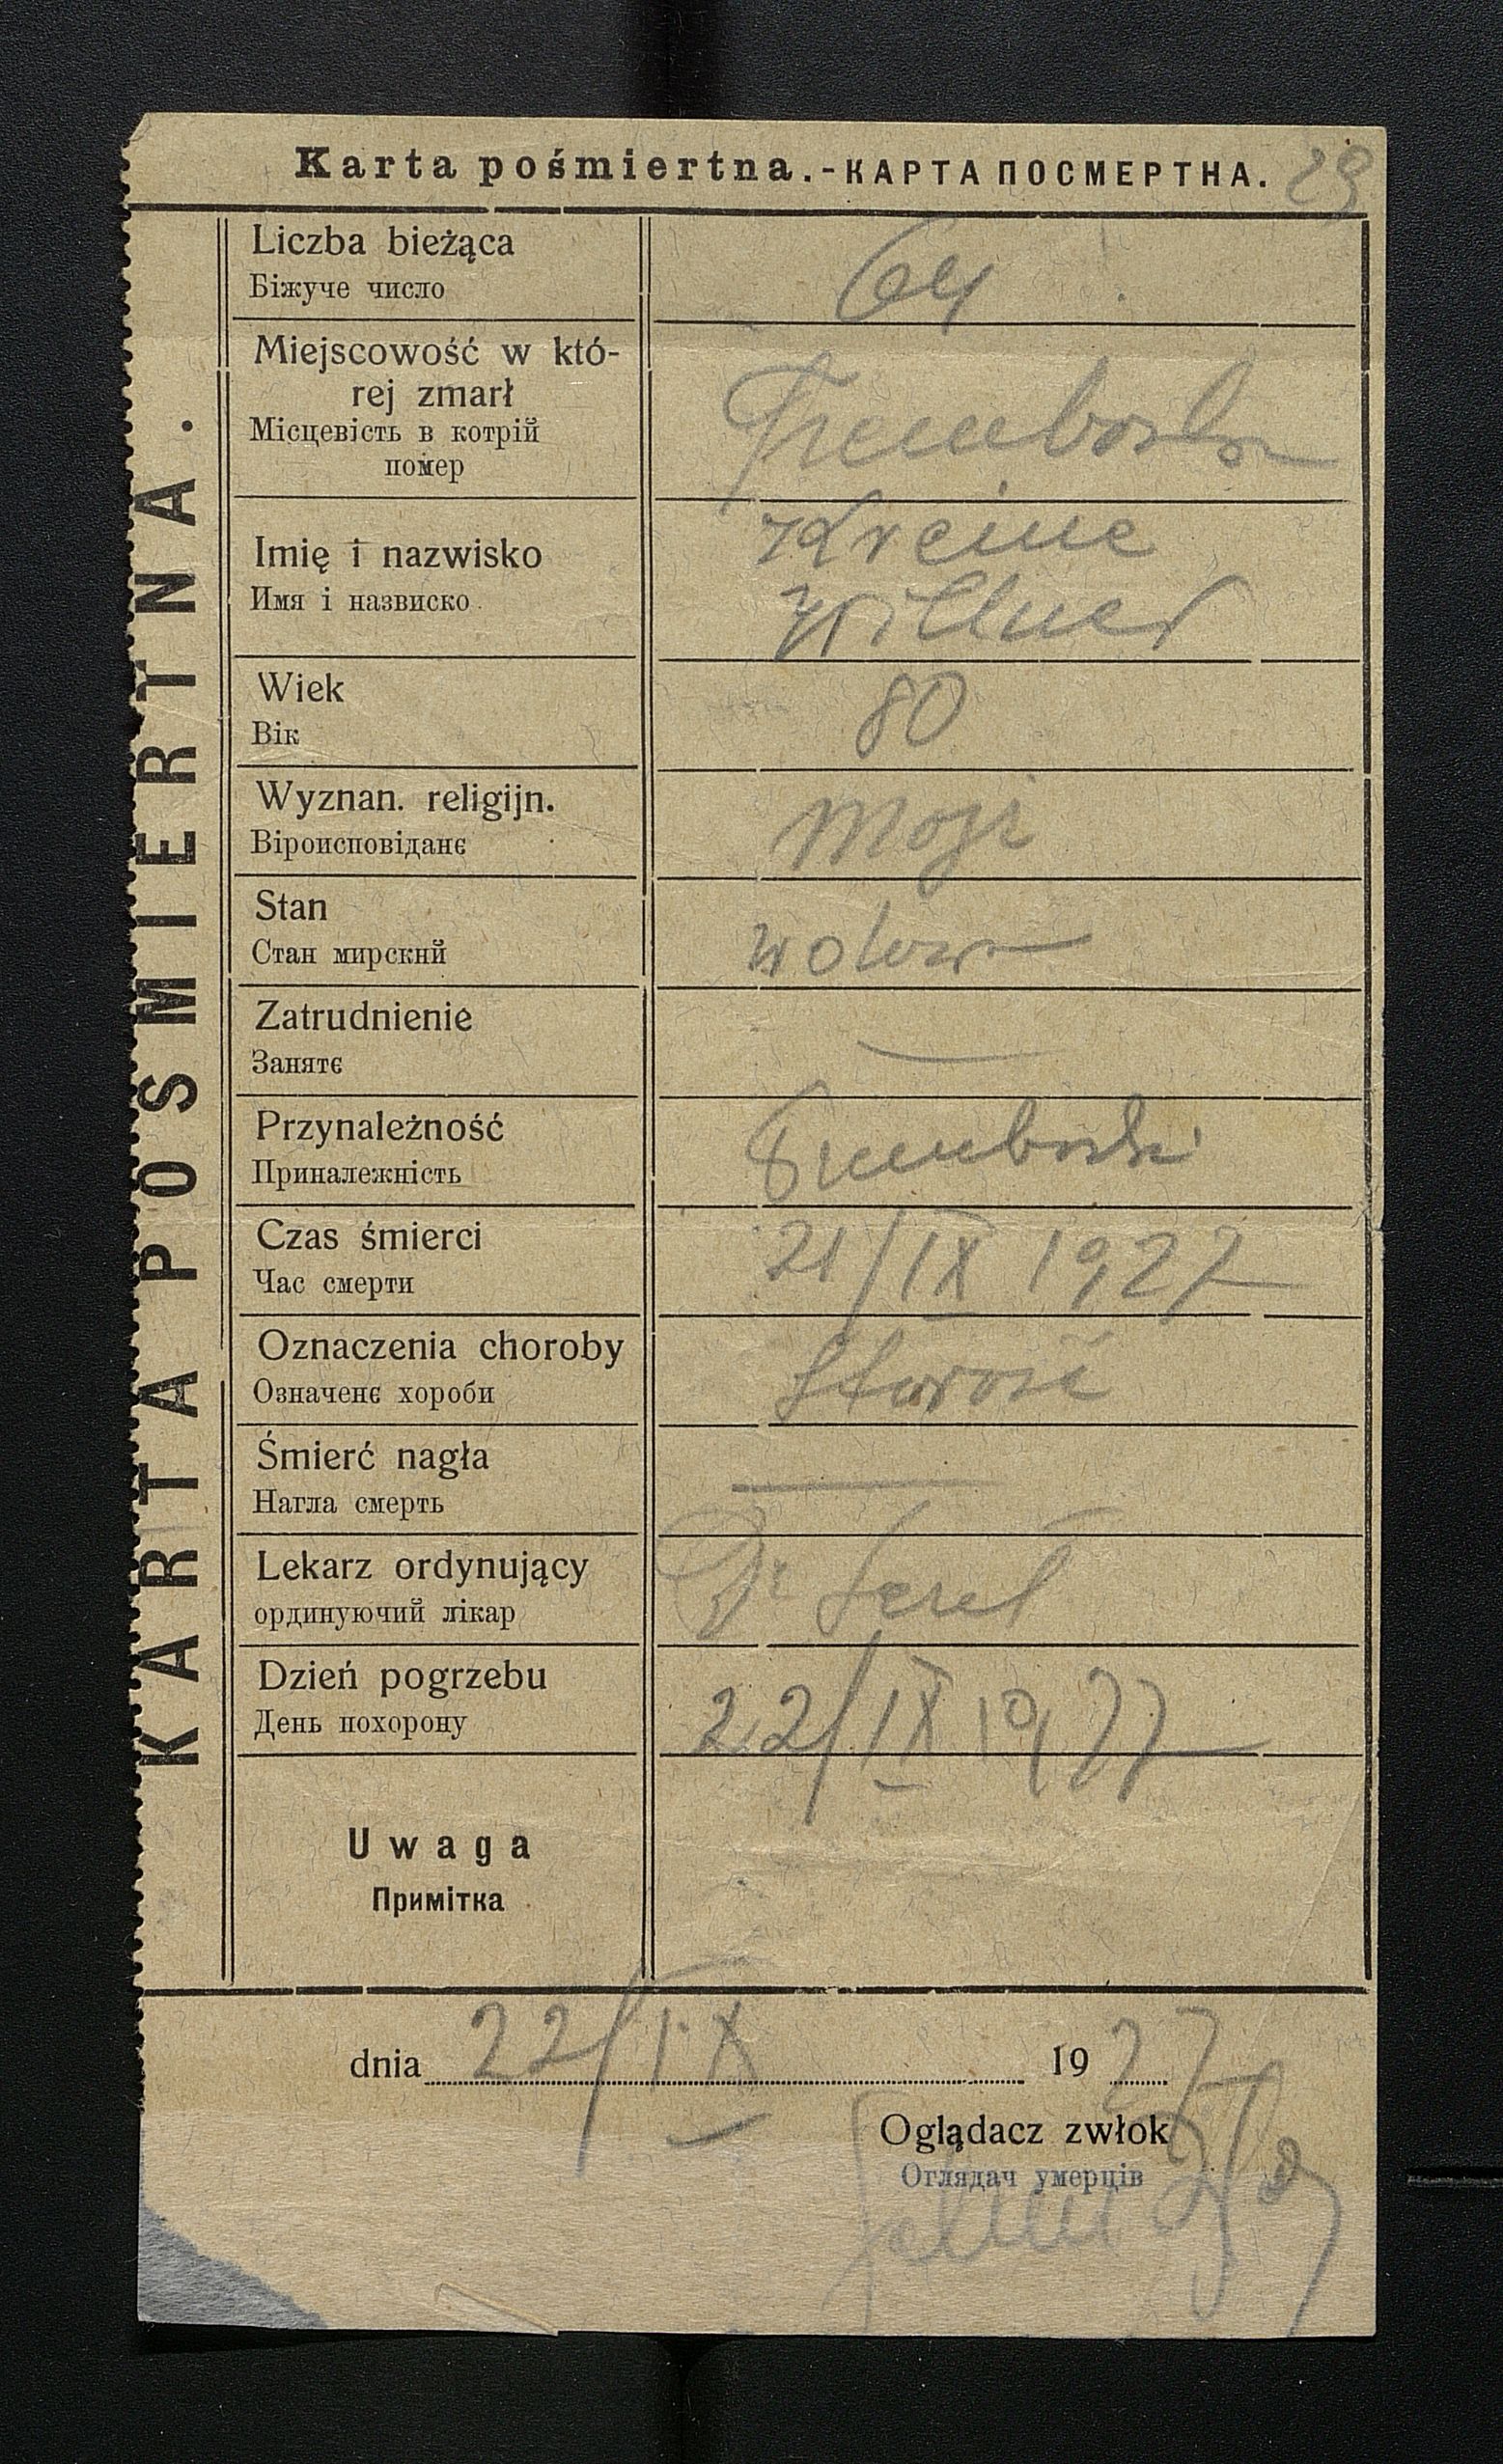 Karta pośmiertna.-КАРТА ПОСМЕРТНА. 29
KARTA POSMIERTNA.
Liczba bieżąca 64
Біжуче число
Miejscowość w któ-
rej zmarł Trembowla
Місцевість в котрій
помер
Imię i nazwisko Kreine
Имя і назвиско Willner
Wiek 80
Вік
Wyznan. religijn. Mojż
Віроисповіданє
Stan wdowa
Стан мирский
Zatrudnienie —
Занятє
Przynależność
Приналежність
Czas śmierci 21/IX 1927
Час смерти
Oznaczenia choroby Starość
Означенє хороби
Śmierć nagła —
Нагла смерть
Lekarz ordynujący Dr
ординуючий лікар
Dzień pogrzebu 22/IX 1927
День похорону
Uwaga
Примітка
dnia 22/IX 1927
Oglądacz zwłok
Оглядач умерців